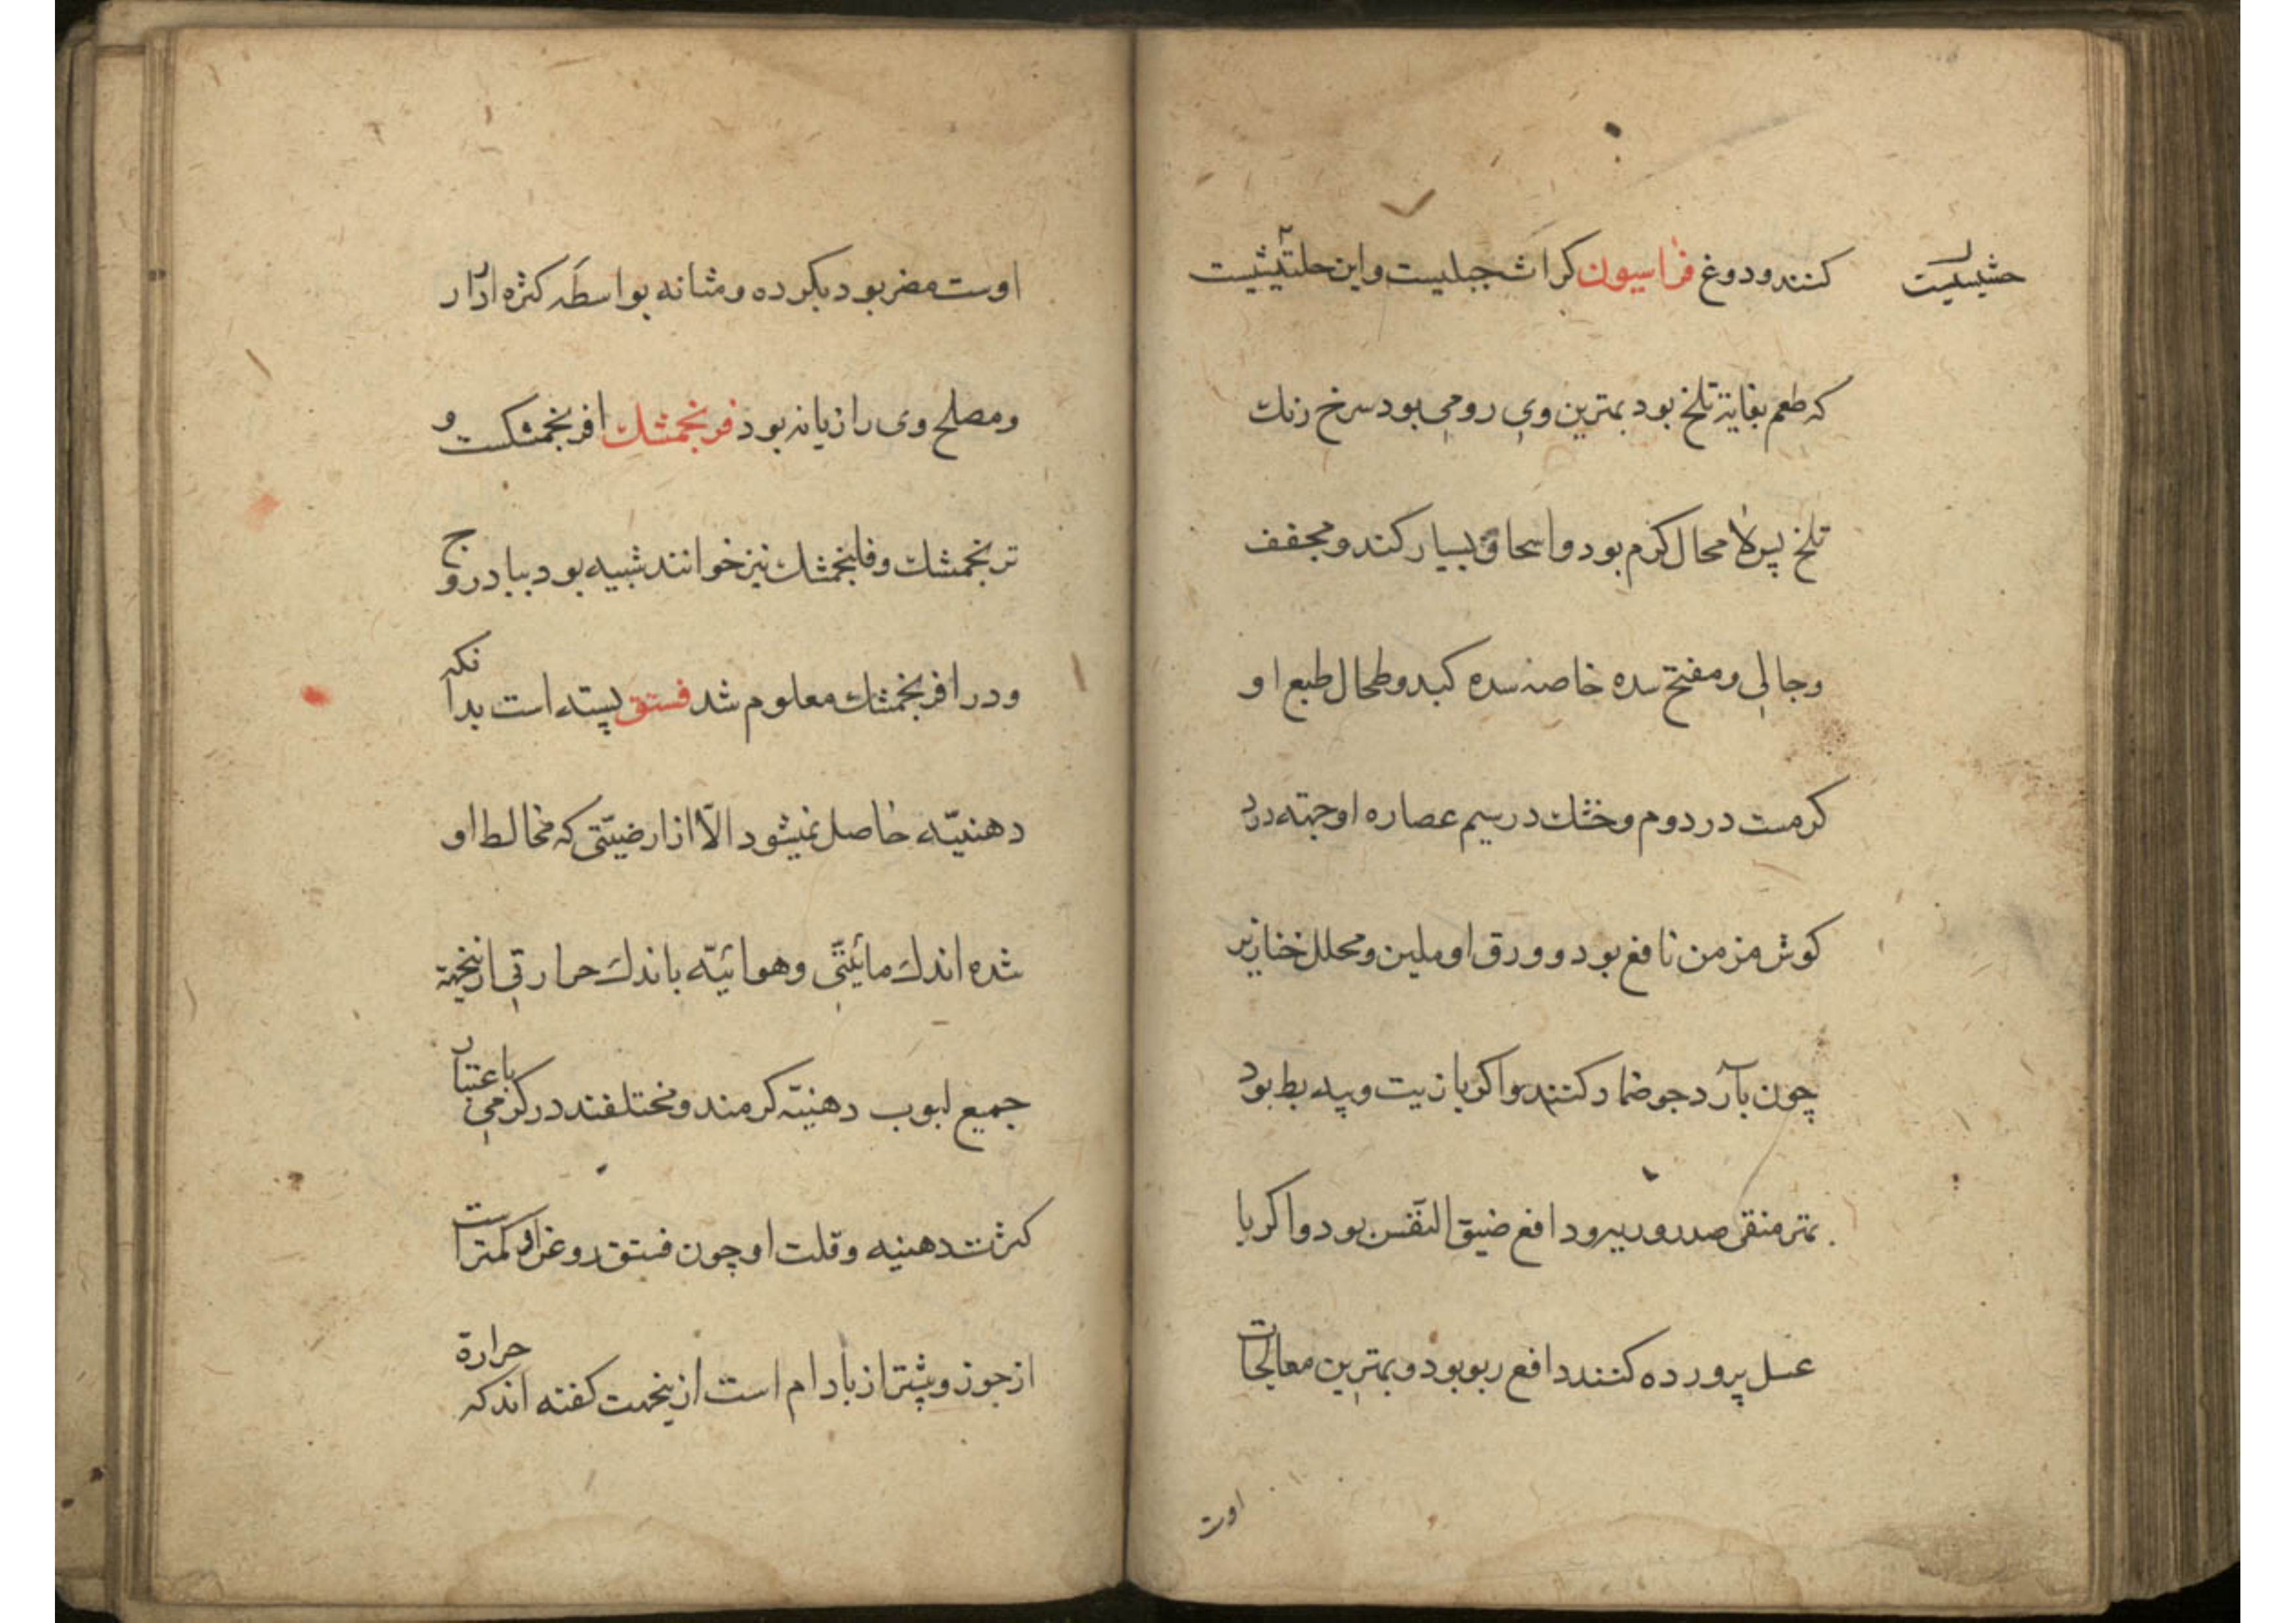 کنند و دوغ فراسیون کراث جبلیست و این حلتیثیست
حشیشیست
که طعم بغایة تلخ بود بهترین وی رومی بود سرخ رنك
تلخ پس لا محال کرم بود و اسحاق بسیار کند و مجفف
و جالی و مفتح سده خاصه سده کبد و طحال طبع او
کرمست در دوم و خشك در سیم عصاره او جهته درد
کوش مزمن نافع بود و ورق او ملین و محلل خنازیر
چون بآرد جو ضماد کنند و اکر با زیت و پیه بط بود
بهتر منقی صدر و ریه و دافع ضیق النفس بود و اکر با
عسل پرورده کنند دافع ربو بود و بهترین معالجات
اوت
اوست مضر بود بکرده و مثانه بواسطه کثرة ادرار
و مصلح وی رازیانه بود فرنجمشك افرنجمشکست و
ترنجمشك و فلنجمشك نیز خوانند شبیه بود ببادروج
و در افرنجمشك معلوم شد فستق پسته است بدانکه
دهنیّه حاصل نمیشود الّا از ارضیّتی که مخالط او
شده اندك مائیّتی و هوائیّه باندك حرارتی ازینجهة
جمیع لبوب دهنیّه کرمند و مختلفند در کرمی باعتبار
کثرت دهنیه و قلت او چون فستق روغن او کمتر است
از جوز و بیشتر از بادام است ازینجهت کفته اند که حرارة